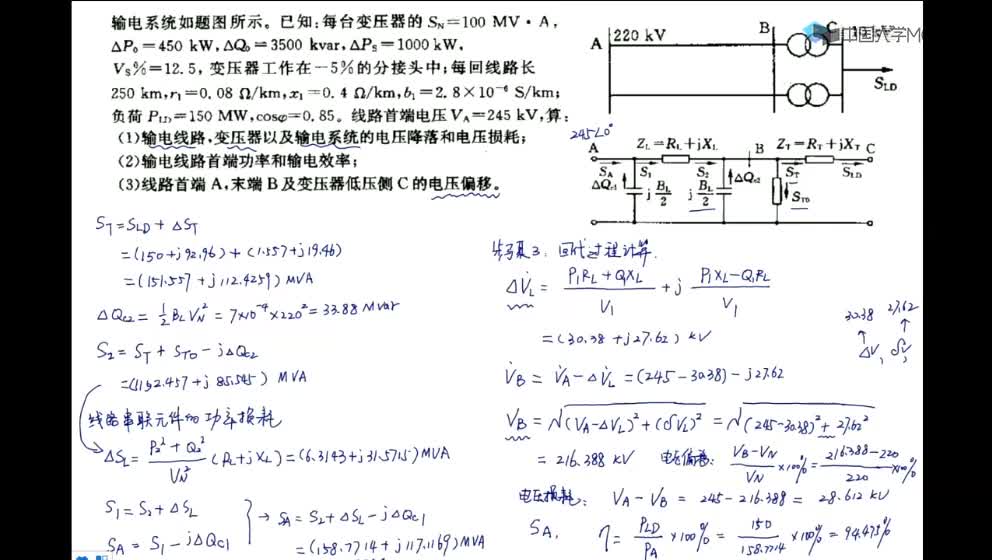 输电系统如题图所示。已知：每台变压器的 S_N=100 MV·A,
ΔP₀=450 kW, ΔQ₀=3500 kvar, ΔP_S=1000 kW,
V_S%=12.5, 变压器工作在－5%的分接头中；每回线路长
250 km, r₁=0.08 Ω/km, x₁=0.4 Ω/km, b₁=2.8×10⁻⁶ S/km;
负荷 P_LD=150 MW, cosφ=0.85。线路首端电压 V_A=245 kV, 算：
(1)输电线路，变压器以及输电系统的电压降落和电压损耗；
(2)输电线路首端功率和输电效率；
(3)线路首端 A, 末端 B 及变压器低压侧 C 的电压偏移。
A 220 kV B C
中国大学MO
S_LD
245∠0°
A Z_L=R_L+jX_L B Z_T=R_T+jX_T C
S_A S₁ S₂ ΔQ_c2 S_T S_LD
ΔQ_c1 j B_L/2 j B_L/2 S_T0
S_T = S_LD + ΔS_T
= (150+j92.96) + (1.557+j19.46)
= (151.557+j112.4259) MVA
ΔQ_c2 = 1/2 B_L V_N² = 7×10⁻⁴×220² = 33.88 Mvar
S₂ = S_T + S_T0 - jΔQ_c2
= (152.457+j85.545) MVA
线路串联元件的功率损耗
ΔS_L = (P₂²+Q₂²)/V_N² (R_L+jX_L) = (6.3143+j31.5715) MVA
S₁ = S₂ + ΔS_L
S_A = S₁ - jΔQ_c1
→ S_A = S₂ + ΔS_L - jΔQ_c1
= (158.7714+j117.1169) MVA
步骤3：回代过程计算.
ΔV̇_L = (P₁R_L+Q₁X_L)/V₁ + j (P₁X_L-Q₁R_L)/V₁
= (30.38+j27.62) kV
30.38 27.62
ΔV, δV,
V̇_B = V̇_A - ΔV̇_L = (245-30.38) - j27.62
V_B = √((V_A-ΔV_L)²+(δV_L)²) = √((245-30.38)²+27.62²)
= 216.388 kV 电压偏移: (V_B-V_N)/V_N ×100% = (216.388-220)/220 ×100%
电压损耗: V_A-V_B = 245-216.388 = 28.612 kV
S_A, η = P_LD/P_A ×100% = 150/158.7714 ×100% = 94.475%